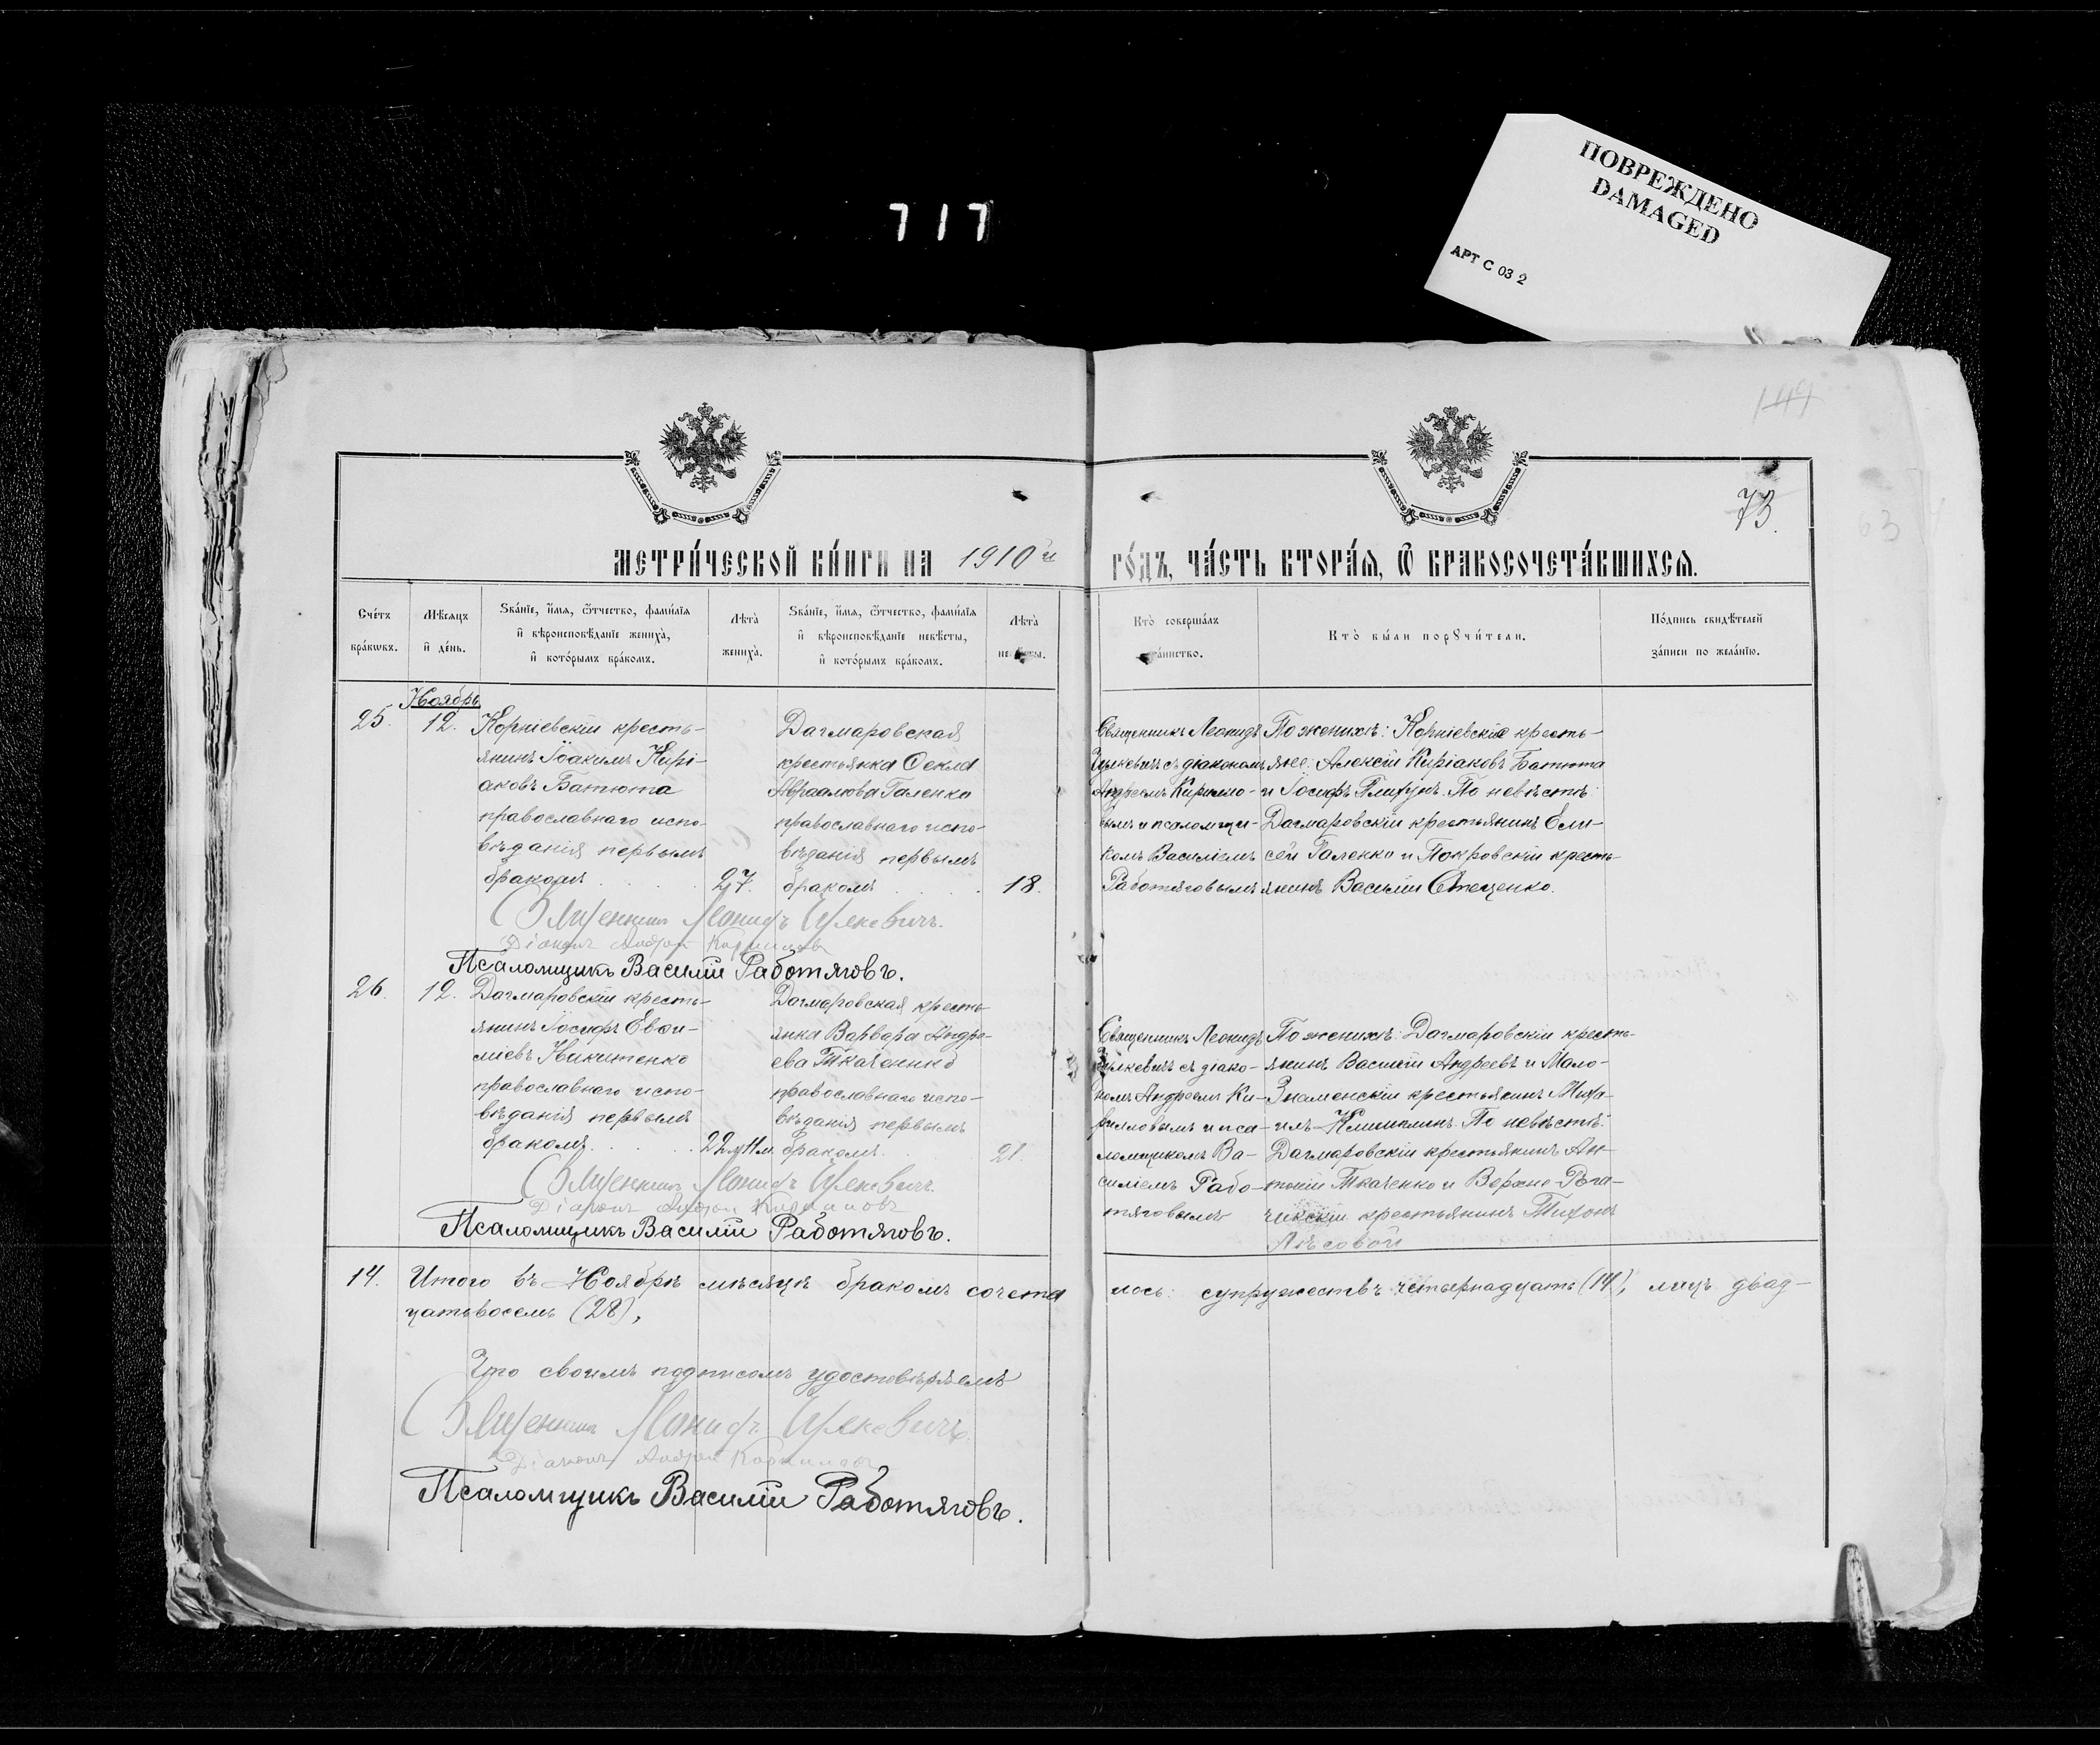 717
ПОВРЕЖДЕНО
DAMAGED
АРТ С 03 2
149
73.
63
МЕТРИ́ЧЕСКОЙ КНИ́ГИ НА 1910й
ГО́ДЪ, ЧА́СТЬ ВТОРА́Я, Ѿ БРАКОСОЧЕТА́ВШИХСЯ.
Сче́тъ
бра́кѡвъ.
Мѣ́сяцъ
и҆ де́нь.
Ѕва́нїе, и҆́мя, ѻ҆́тчество, фами́лїя
и҆ вѣроисповѣ́данїе жениха̀,
и҆ кото́рымъ бра́комъ.
Лѣта̀
жениха̀.
Ѕва́нїе, и҆́мя, ѻ҆́тчество, фами́лїя
и҆ вѣроисповѣ́данїе невѣ́сты,
и҆ кото́рымъ бра́комъ.
Лѣта̀
невѣ́сты.
Кто̀ соверша́лъ
та́инство.
Кто̀ бы́ли порꙋчи́тели.
По́дпись свидѣ́телей
за́писи по жела́нїю.
Ноябрь
25.
12.
Корніевскій кресть-
янинъ Іоакимъ Кирі-
аковъ Батюта
православнаго испо-
вѣданія первымъ
бракомъ
27.
Дагмаровская
крестьянка Ѳекла
Авраамова Галенко
православнаго испо-
вѣданія первымъ
бракомъ
18.
Священникъ Леонидъ
съ діакономъ
Андреемъ Кирилло-
вымъ и псаломщи-
комъ Василіемъ
Работяговымъ
По женихѣ: Корніевскіе кресть-
яне: Алексій Киріаковъ Батюта
и Іосифъ Плихунъ. По невѣстѣ:
Дагмаровскій крестьянинъ Ели-
сей Галенко и Покровскій кресть-
янинъ Василій Стеценко.
Священникъ Леонидъ
Діаконъ Андрей Кирилловъ
Псаломщикъ Василій Работяговъ.
26.
12.
Дагмаровскій кресть-
янинъ Іосифъ Евѳи-
міевъ Никитенко
православнаго испо-
вѣданія первымъ
бракомъ
22 л 11 м.
Дагмаровская кресть-
янка Варвара Андре-
ева Ткаченко
православнаго испо-
вѣданія первымъ
бракомъ
21.
Священникъ Леонидъ
съ діако-
номъ Андреемъ Ки-
рилловымъ и пса-
ломщикомъ Ва-
силіемъ Рабо-
тяговымъ
По женихѣ: Дагмаровскій кресть-
янинъ Василій Андреевъ и Мало-
Знаменскій крестьянинъ Миха-
илъ По невѣстѣ:
Дагмаровскій крестьянинъ Ан-
тоній Ткаченко и Верхне-Рога-
чикскій крестьянинъ Тихонъ
Лѣсовой
Священникъ Леонидъ
Діаконъ Андрей Кирилловъ
Псаломщикъ Василій Работяговъ.
14.
Итого въ Ноябрѣ мѣсяцѣ бракомъ сочета
лось: супружествъ четырнадцать (14), лицъ двад-
цатьвосемь (28),
Что своимъ подписомъ удостовѣряемъ
Священникъ Леонидъ
Діаконъ Андрей Кирилловъ
Псаломщикъ Василій Работяговъ.